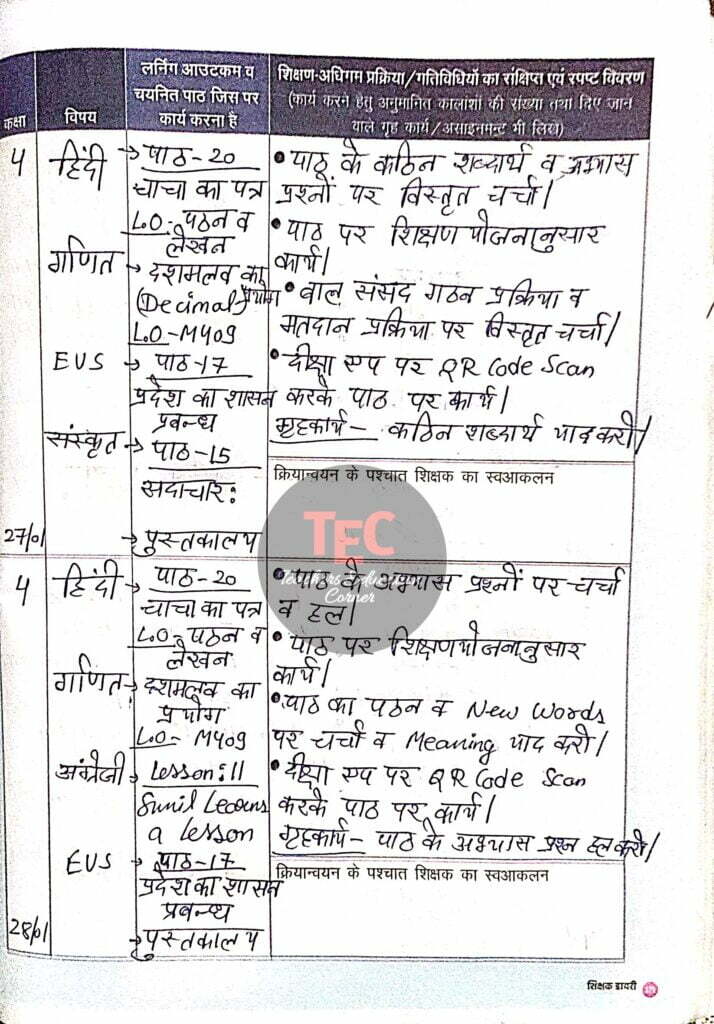 कक्षा
विषय
लर्निंग आउटकम व
चयनित पाठ जिस पर
कार्य करना है
शिक्षण-अधिगम प्रक्रिया/गतिविधियों का संक्षिप्त एवं स्पष्ट विवरण
(कार्य करने हेतु अनुमानित कालांशों की संख्या तथा दिए जान
वाले गृह कार्य/असाइनमेंट भी लिखे)
4
हिंदी
→ पाठ-20
चाचा का पत्र
L.O- पठन व
लेखन
गणित
→ दशमलव का
प्रयोग
(Decimal)
L.O-M409
EVS
→ पाठ-17
प्रदेश का शासन
प्रबन्ध
संस्कृत
→ पाठ-15
सदाचार:
→ पुस्तकालय
27/01
• पाठ के कठिन शब्दार्थ व अभ्यास
प्रश्नों पर विस्तृत चर्चा।
• पाठ पर शिक्षण योजनानुसार
कार्य।
• बाल संसद गठन प्रक्रिया व
मतदान प्रक्रिया पर विस्तृत चर्चा।
• दीक्षा एप पर QR Code Scan
करके पाठ पर कार्य।
गृहकार्य - कठिन शब्दार्थ याद करो।
क्रियान्वयन के पश्चात शिक्षक का स्वआकलन
TEC
Teachers Education
Corner
4
हिंदी
→ पाठ-20
चाचा का पत्र
L.O- पठन व
लेखन
गणित
→ दशमलव का
प्रयोग
L.O- M409
अंग्रेजी
→ Lesson:11
Sunil Learns
a Lesson
EVS
→ पाठ-17
प्रदेश का शासन
प्रबन्ध
→ पुस्तकालय
28/01
• पाठ के अभ्यास प्रश्नों पर चर्चा
व हल।
• पाठ पर शिक्षण योजनानुसार
कार्य।
• पाठ का पठन व New Words
पर चर्चा व Meaning याद करो।
• दीक्षा एप पर QR Code Scan
करके पाठ पर कार्य।
गृहकार्य- पाठ के अभ्यास प्रश्न हल करो।
क्रियान्वयन के पश्चात शिक्षक का स्वआकलन
शिक्षक डायरी